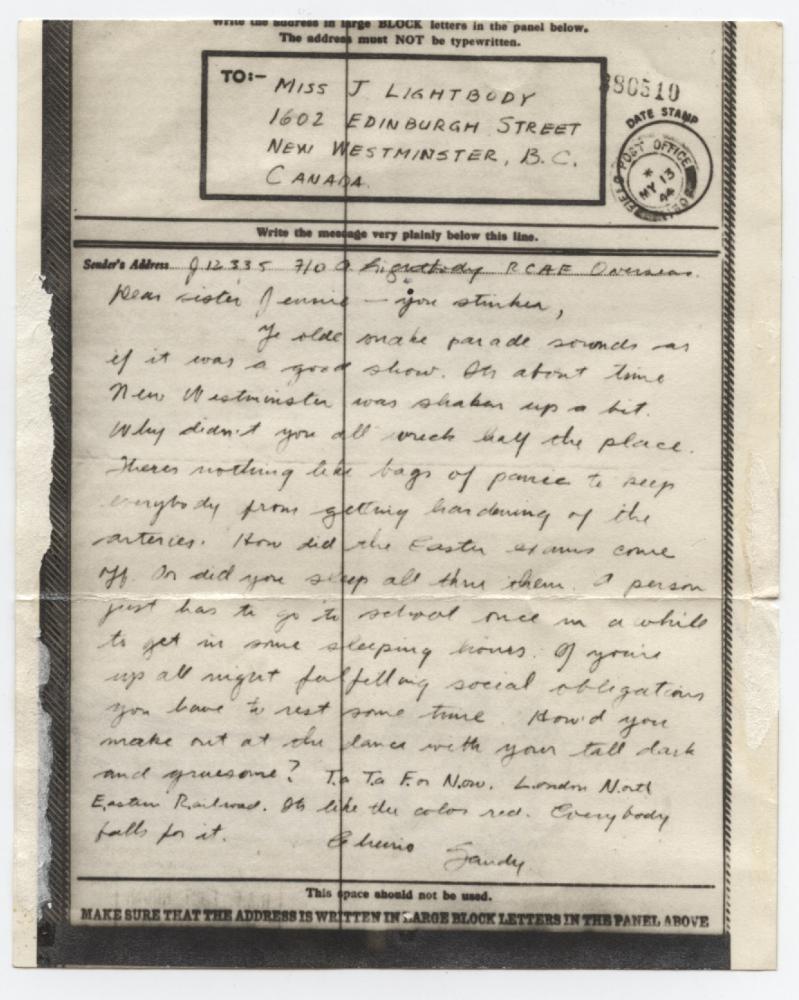 Write the address in large BLOCK letters in the panel below.
The address must NOT be typewritten.
TO:- MISS J LIGHTBODY
1602 EDINBURGH STREET
NEW WESTMINSTER, B.C.
CANADA
380510
DATE STAMP
FIELD POST OFFICE
MY 13
44
Write the message very plainly below this line.
Sender's Address J12335 F/O A Lightbody RCAF Overseas.
Dear sister Jennie — you stinker,
Ye olde snake parade sounds as
if it was a good show. Its about time
New Westminster was shaken up a bit.
Why didn't you all wreck half the place.
Theres nothing like bags of panic to keep
everybody from getting hardening of the
arteries. How did the Easter exams come
off. Or did you sleep all thru them. A person
just has to go to school once in a while
to get in some sleeping hours. If you're
up all night fulfelling social obligations
you have to rest some time. How'd you
make out at the dance with your tall dark
and gruesome? Ta Ta For Now. London North
Eastern Railroad. Its like the color red. Everybody
falls for it. Cheerio Sandy.
This space should not be used.
MAKE SURE THAT THE ADDRESS IS WRITTEN IN LARGE BLOCK LETTERS IN THE PANEL ABOVE